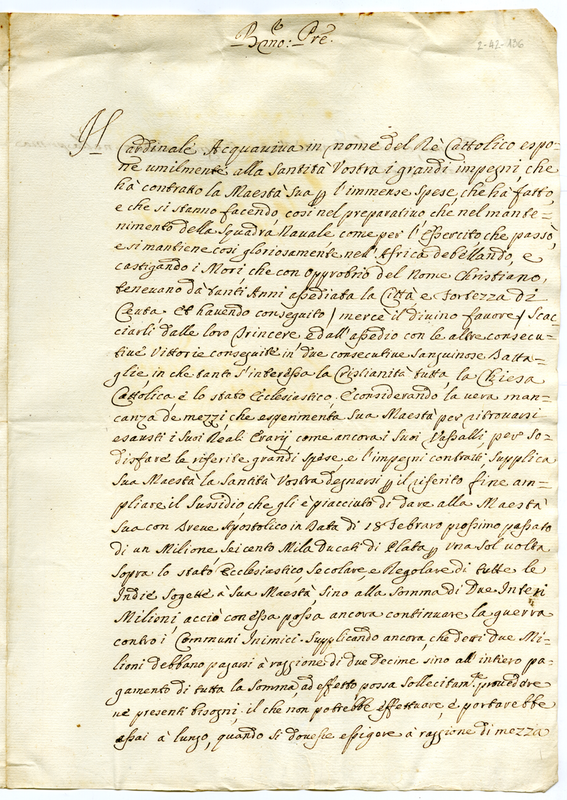 B.mo: Pre.
2-42-136
Il Cardinale Acquaviva in nome del Rè Cattolico espo=
ne umilmente alla Santità Vostra i grandi impegni che
hà contratto la Maestà Sua p l'immense Spese, che hà fatto,
e che si stanno facendo, cosi nel preparativo che nel mante=
nimento della Squadra Navale come per l'Essercito che passò,
e si mantiene cosi gloriosamente nell'Africa debellando, e
castigando i Mori che con opprobrio del Nome Christiano,
tenevano dà tanti Anni assediata la Città e Fortezza di
Ceuta. Et havendo conseguito / mercè il divino favore / Scac=
ciarli dalle loro Trincere e dall'assedio con le altre consecu=
tive Vittorie conseguite in due consecutive Sanguinose Batta=
glie in che tanto S'interessa la Cristianità tutta, la Chiesa
Cattolica, e lo stato Ecclesiastico, E considerando la vera man=
canza de mezzi, che esperimenta Sua Maestà per ritrovarsi
esausti i Suoi Reali Erarij come ancora i Suoi Vassalli, per So=
disfare le riferite grandi Spese e l'impegni contratti, Supplica
Sua Maestà la Santità Vostra degnarsi p il riferito fine am=
pliare il Sussidio che gli è piacciuto di dare alla Maestà
Sua con Breve Apostolico in Data di 18 Febraro prossimo passato
di un Milione Seicento Mila Ducati di Plata p una Sol volta
Sopra lo stato Ecclesiastico, Secolare, e Regolare di tutte le
Indie Sogette à Sua Maestà, sino alla Somma di Due Interi
Milioni, acciò con essa possa ancora continuare la guerra
contro i Communi Inimici. Supplicando ancora, che detti due Mi=
lioni debbano pagarsi à raggione di due Decime sino all'intiero pa=
gamento di tutta la Somma, ad effetto possa Sollecitam.te provedere
ne presenti bisogni; il che non potrebbe effettuare, e portarebbe
assai à lungo, quando si dovesse essigere à raggione di mezza